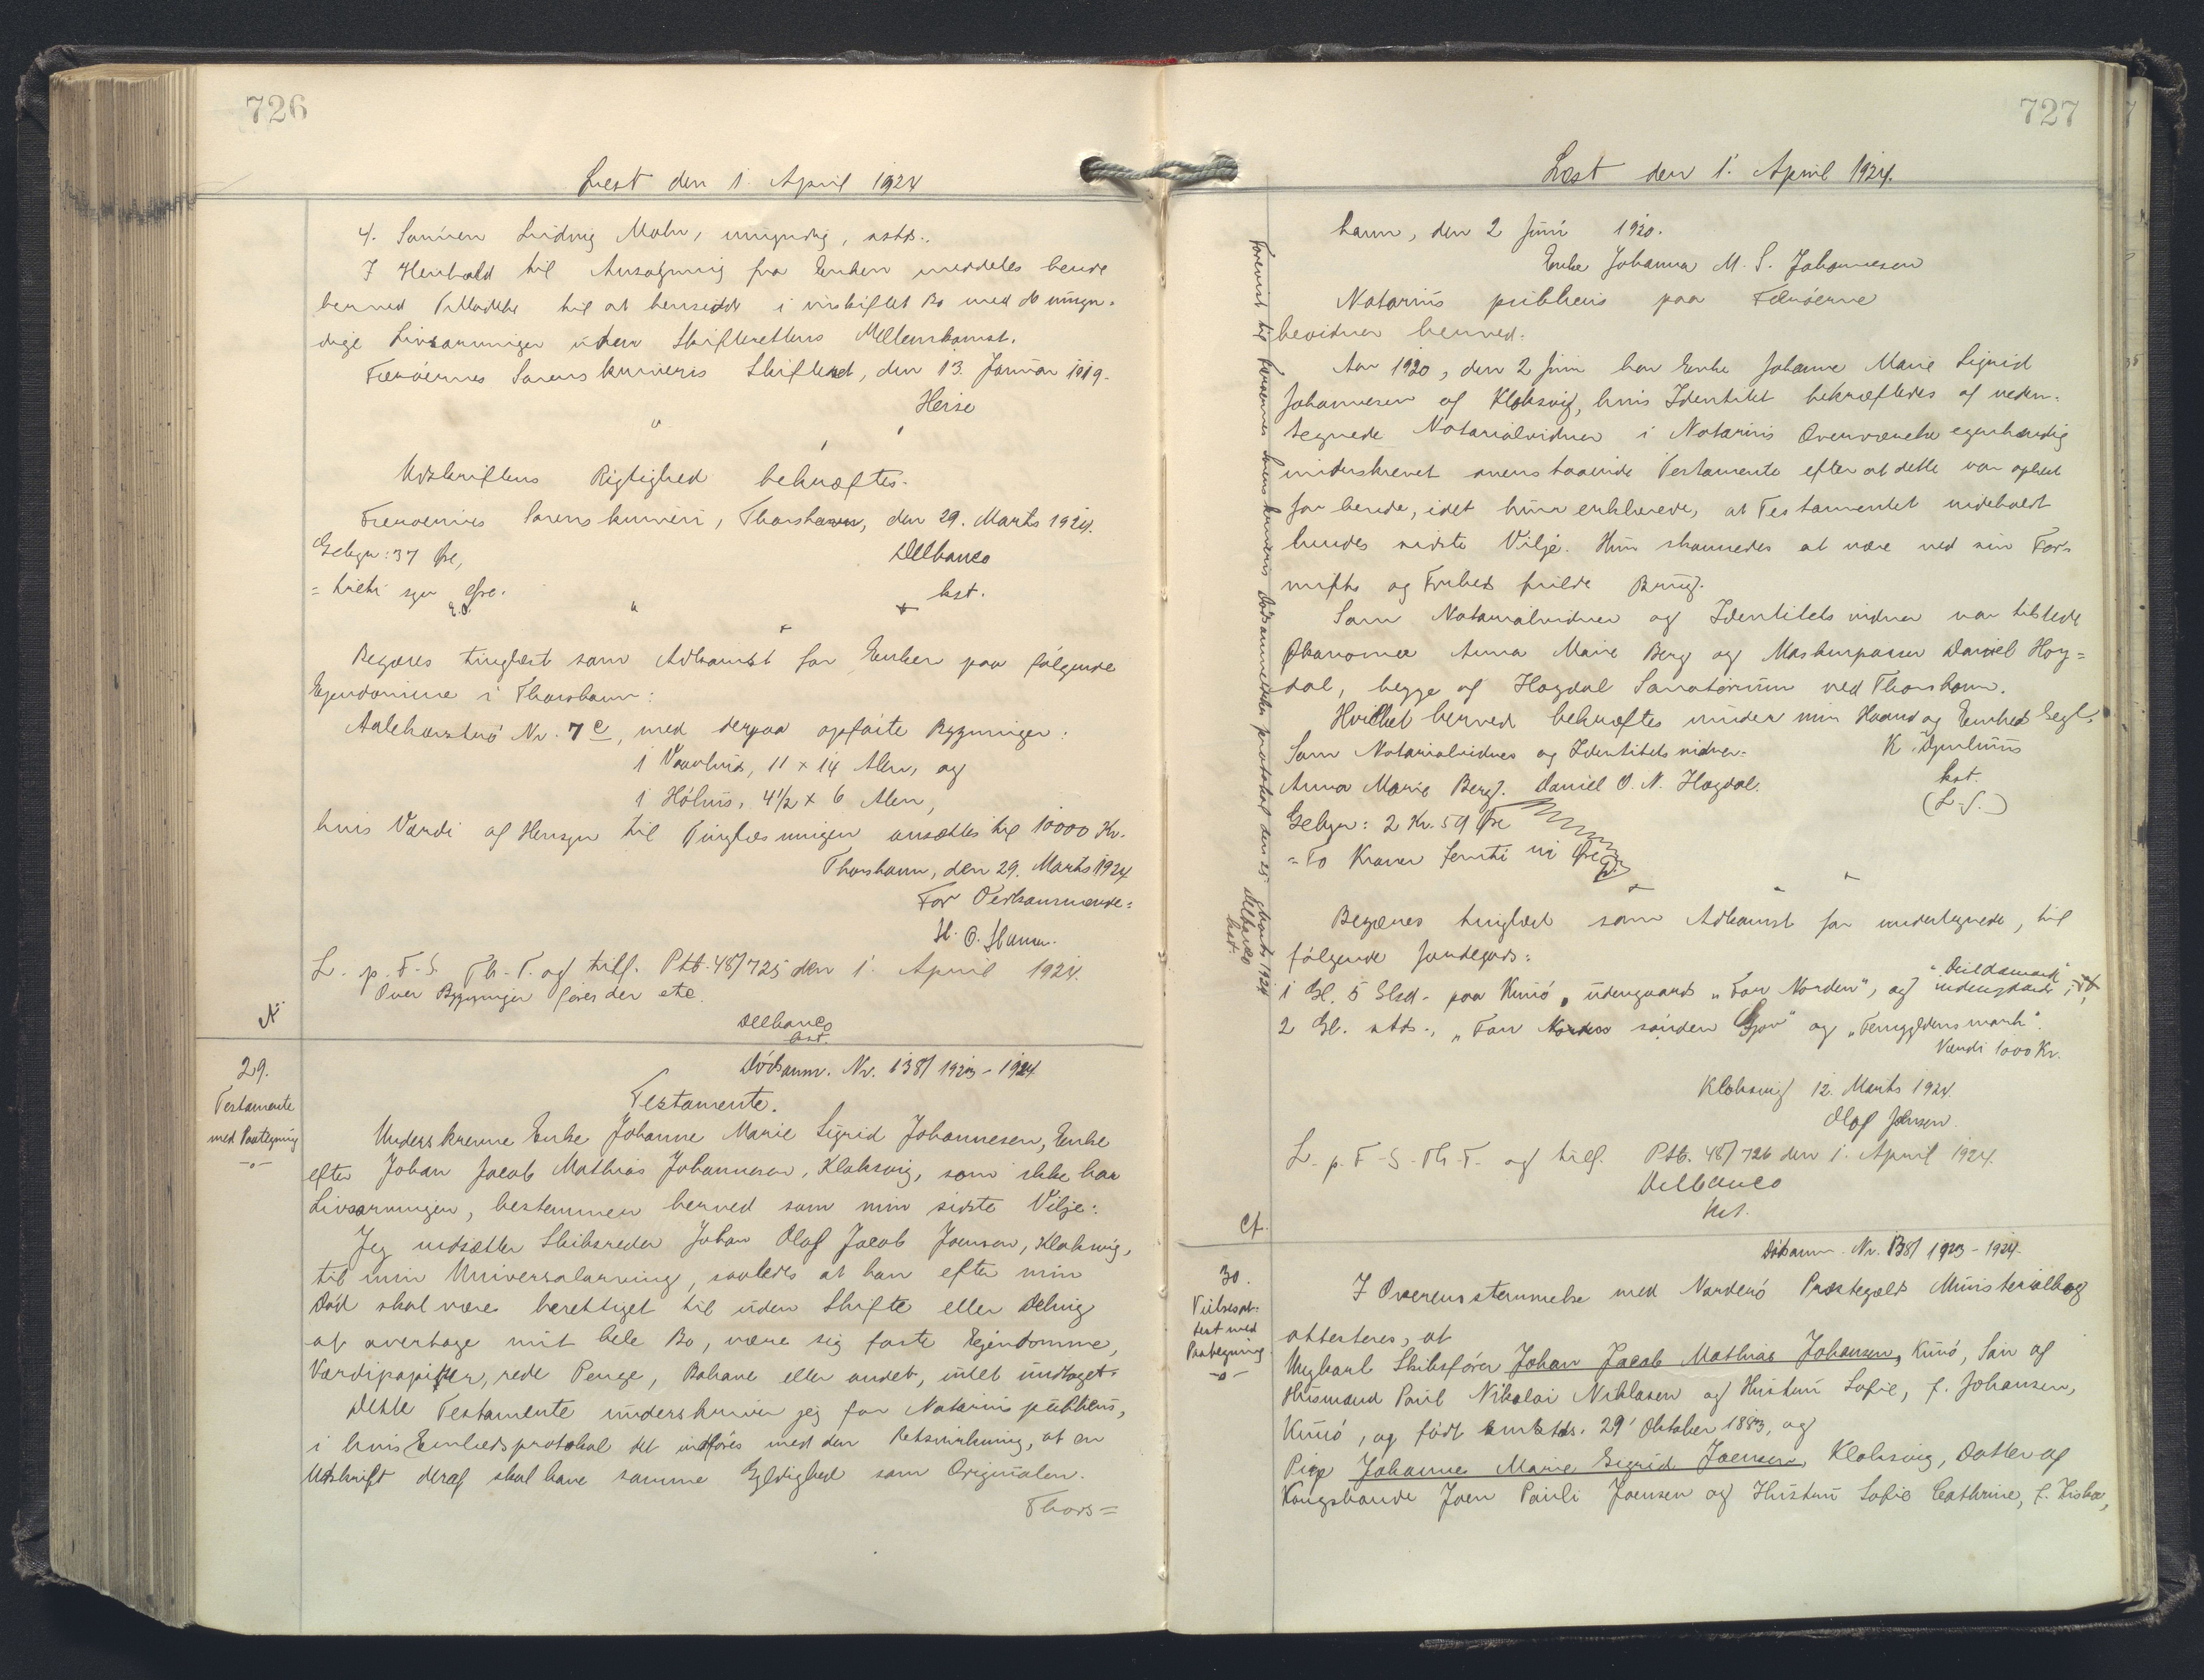 726
Læst den 1. April 1924
4. Sønnen Ludvig Mohr, umyndig, sstds.
I Henhold til Ansøgning fra Enken meddeles hende
herved Tilladelse til at hensidde i uskiftet Bo med de umyn-
dige Livsarvinger uden Skifterettens Mellemkomst.
Færøernes Sorenskriveris Skifteret, den 13. Januar 1919.
Heise
Udskriftens Rigtighed bekræftes.
Færøernes Sorenskriveri, Thorshavn, den 29. Marts 1924.
Gebyr: 37 Øre,
Delbanco
= treti syv Øre.
kst.
Begæres tinglæst som Adkomst for Enken paa følgende
Ejendomme i Thorshavn:
Nr. 7c, med derpaa opførte Bygninger:
1 Vaanhus, 11 x 14 Alen, og
1 Hølus, 4½ x 6 Alen,
hvis Værdi af Hensyn til Tinglæsningen ansættes til 10000 Kr.
Thorshavn, den 29. Marts 1924
For Vedkommende:
L. p. F-S. Th-T. og tilf. Ptb. 48/725 den 1. April 1924.
Over Bygninger føres der etc.
Delbanco
kst.
29.
Testamente
med Paategning
-o-
Dødsanm. Nr. 138/1923-1924
Testamente.
Underskrevne Enke Johanne Marie Sigrid Johannesen, Enke
efter Johan Jacob Mathias Johannesen, Klaksvig, som ikke har
Livsarvinger, bestemmer herved som min sidste Vilje:
Jeg indsætter Skibsreder Johan Olaf Jacob Joensen, Klaksvig,
til min Universalarving, saaledes at han efter min
Død skal være berettiget til uden Skifte eller Deling
at overtage mit hele Bo, være sig faste Ejendomme,
Værdipapirer, rede Penge, Bohave eller andet, intet undtaget.
Dette Testamente underskriver jeg for Notarius publicus,
i hvis Embedsprotokol det indføres med den Retsvirkning, at en
Udskrift deraf skal have samme Gyldighed som Originalen.
Thors=
727
Læst den 1. April 1924.
havn, den 2 Juni 1920.
Enke Johanna M. S. Johannesen
Notarius publicus paa Færøerne
bevidner herved:
Aar 1920, den 2 Juni har Enke Johanne Marie Sigrid
Johannesen af Klaksvig, hvis Identitet bekræftedes af neden-
tegnede Notarialvidner i Notarius Overværelse egenhændig
underskrevet ovenstaaende Testamente efter at dette var oplæst
for hende, idet hun erklærede, at Testamentet indeholdt
hendes sidste Vilje. Hun skønnedes at være ved sin For-
nufts og Frihed fulde Brug.
Som Notarialvidner og Identitetsvidner var tilstede
Økonoma Anna Marie Berg og Maskinpasser Daniel Hoy=
dal, begge af Hoydal Sanatorium ved Thorshavn.
Hvilket herved bekræftes under min Haand og Embeds Segl.
Som Notarialvidner og Identitetsvidner:
K. Djurhuus
Anna Marie Berg. Daniel O. N. Hoydal.
kst.
(L.S.)
Gebyr: 2 Kr. 59 Øre
= To Kroner femti ni Øre
Begæres tinglæst som Adkomst for undertegnede, til
følgende Jordegods:
1 Gl. 5 Skd. paa Kunø, udengaards "For Norden", og indengaards,
2 Gl. sstds., "For sønden Gjov" og "Femgyldensmark".
Værdi 1000 Kr.
Klaksvig 12. Marts 1924.
Olaf Joensen.
L. p. F-S-Th-T. og tilf. Ptb. 48/726 den 1. April 1924.
Delbanco
kst.
Forevist for Færøernes Sorenskriveris Dødsanmeldelsesprotokol den 25 Marts 1924
Delbanco
kst.
Cf.
30.
Vielsesat-
test med
Paategning
-o-
Dødsanm. Nr. 138/1923-1924.
I Overensstemmelse med Norderø Præstegælds Ministerialbog
attesteres, at
Ungkarl Skibsfører Johan Jacob Mathias Johansen, Kunø, Søn af
Husmand Poul Nikolai Niklasen og Hustru Sofie, f. Johansen,
Kunø, og født smstds. 29' Oktober 1883, og
Pige Johanne Marie Sigrid Joensen, Klaksvig, Datter af
Kongsbonde Joen Pauli Joensen og Hustru Sofie Cathrine, f.